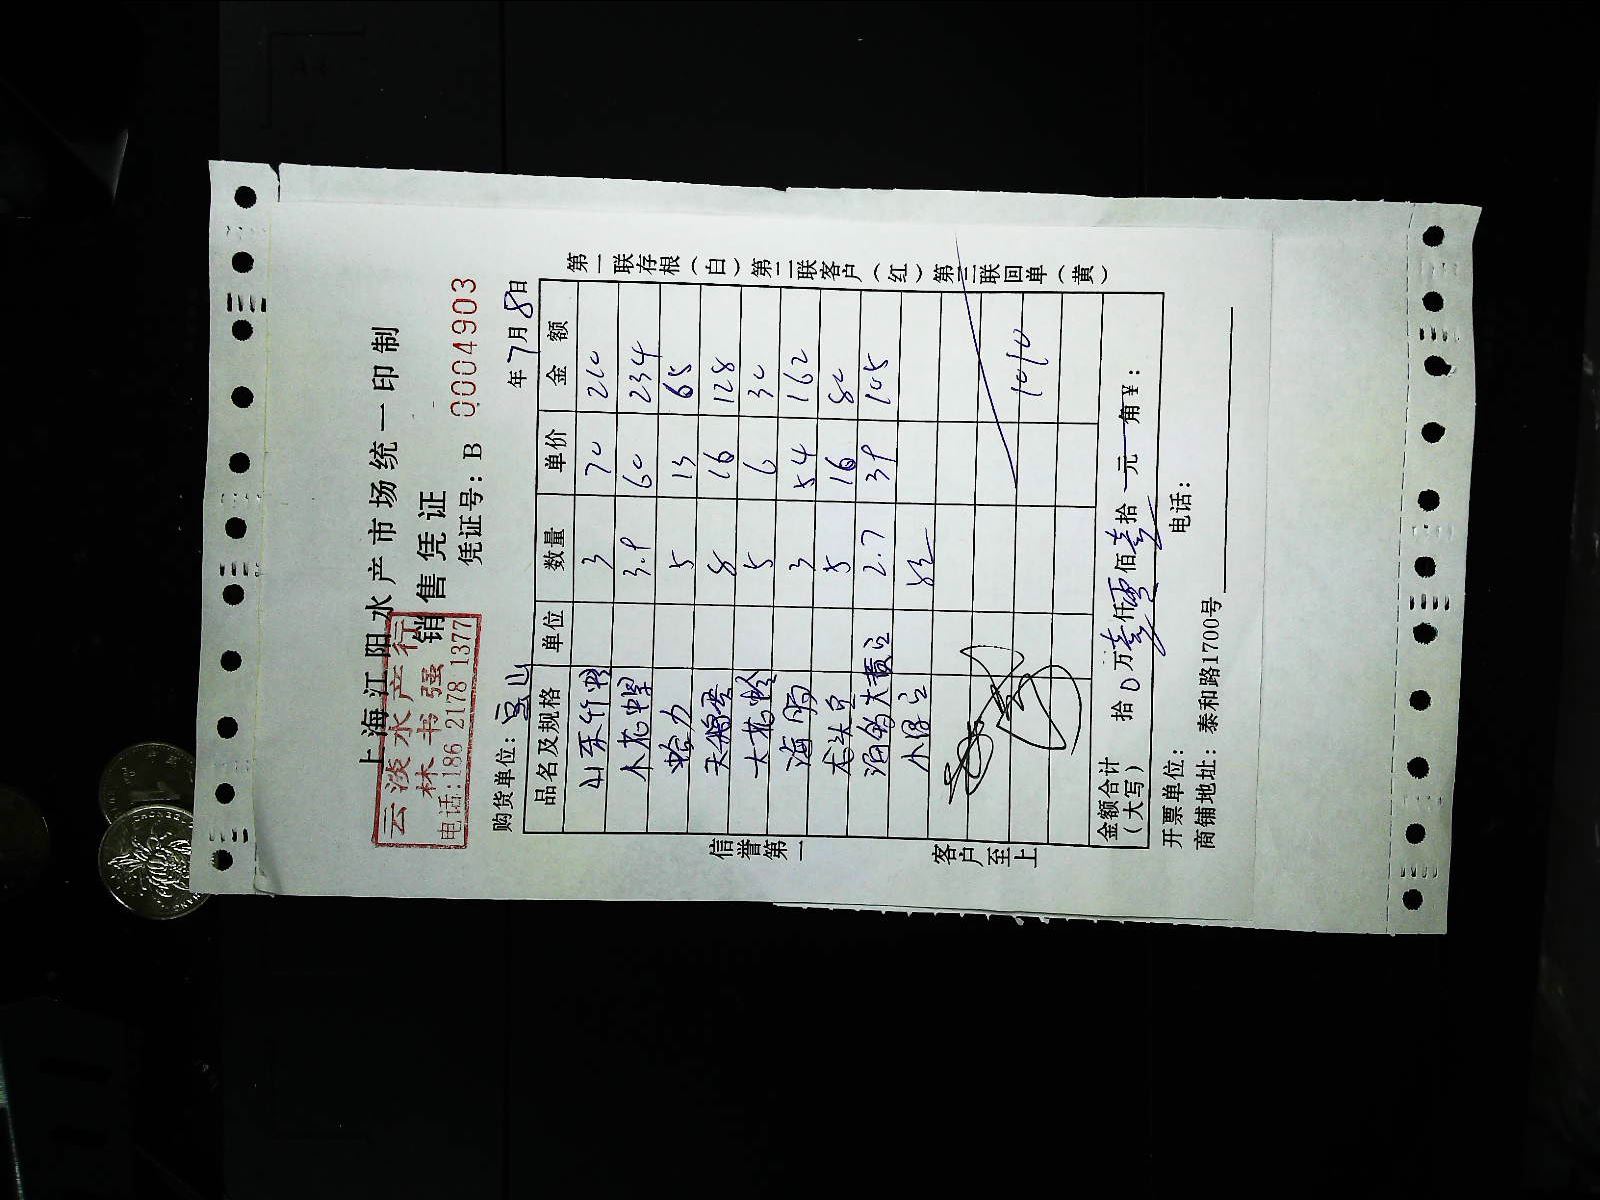 上海江阳水产市场统一印制
销售凭证
云淡水产行
林书强
电话:186 2178 1377
凭证号: B 0004903
购货单位: 宝山 年 7 月 8 日
品名及规格 单位 数量 单价 金额
山东竹蛏 3 70 210
木花蟹 3.9 60 234
蛤力 5 13 65
8 16 128
大花蛤 5 6 30
海肠 3 54 162
龙头 5 16 80
大黄 2.7 39 105
小
1010
金额合计
(大写) 拾 0 万 壹 仟 零 佰 壹 拾 一 元 一 角 ¥:
开票单位: 电话:
商铺地址: 泰和路1700号
信誉第一
客户至上
第一联存根(白) 第二联客户(红) 第三联回单(黄)